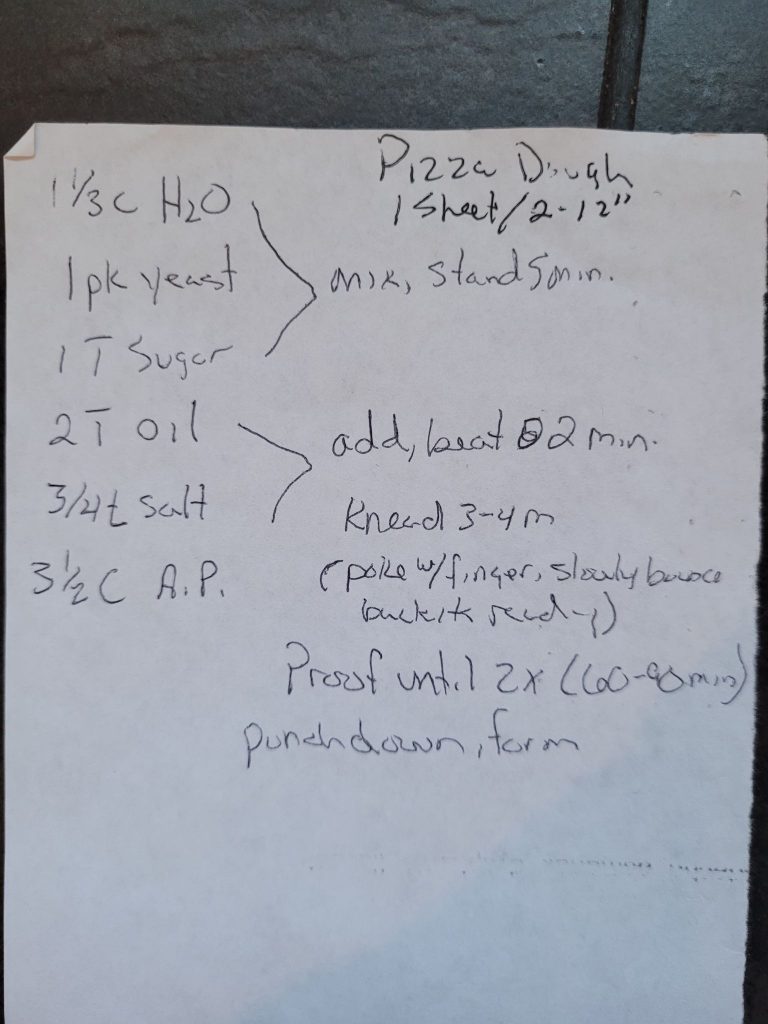 Pizza Dough
1 Sheet/2-12"
1 1/3 c H2O
1 pk yeast
1 T Sugar
mix, Stand 5 min.
2 T Oil
3/4 t Salt
add, beat 2 min.
3 1/2 C A.P.
Knead 3-4 m
(poke w/finger, slowly bounce
back its ready)
Proof until 2x (60-90 min)
punch down, form